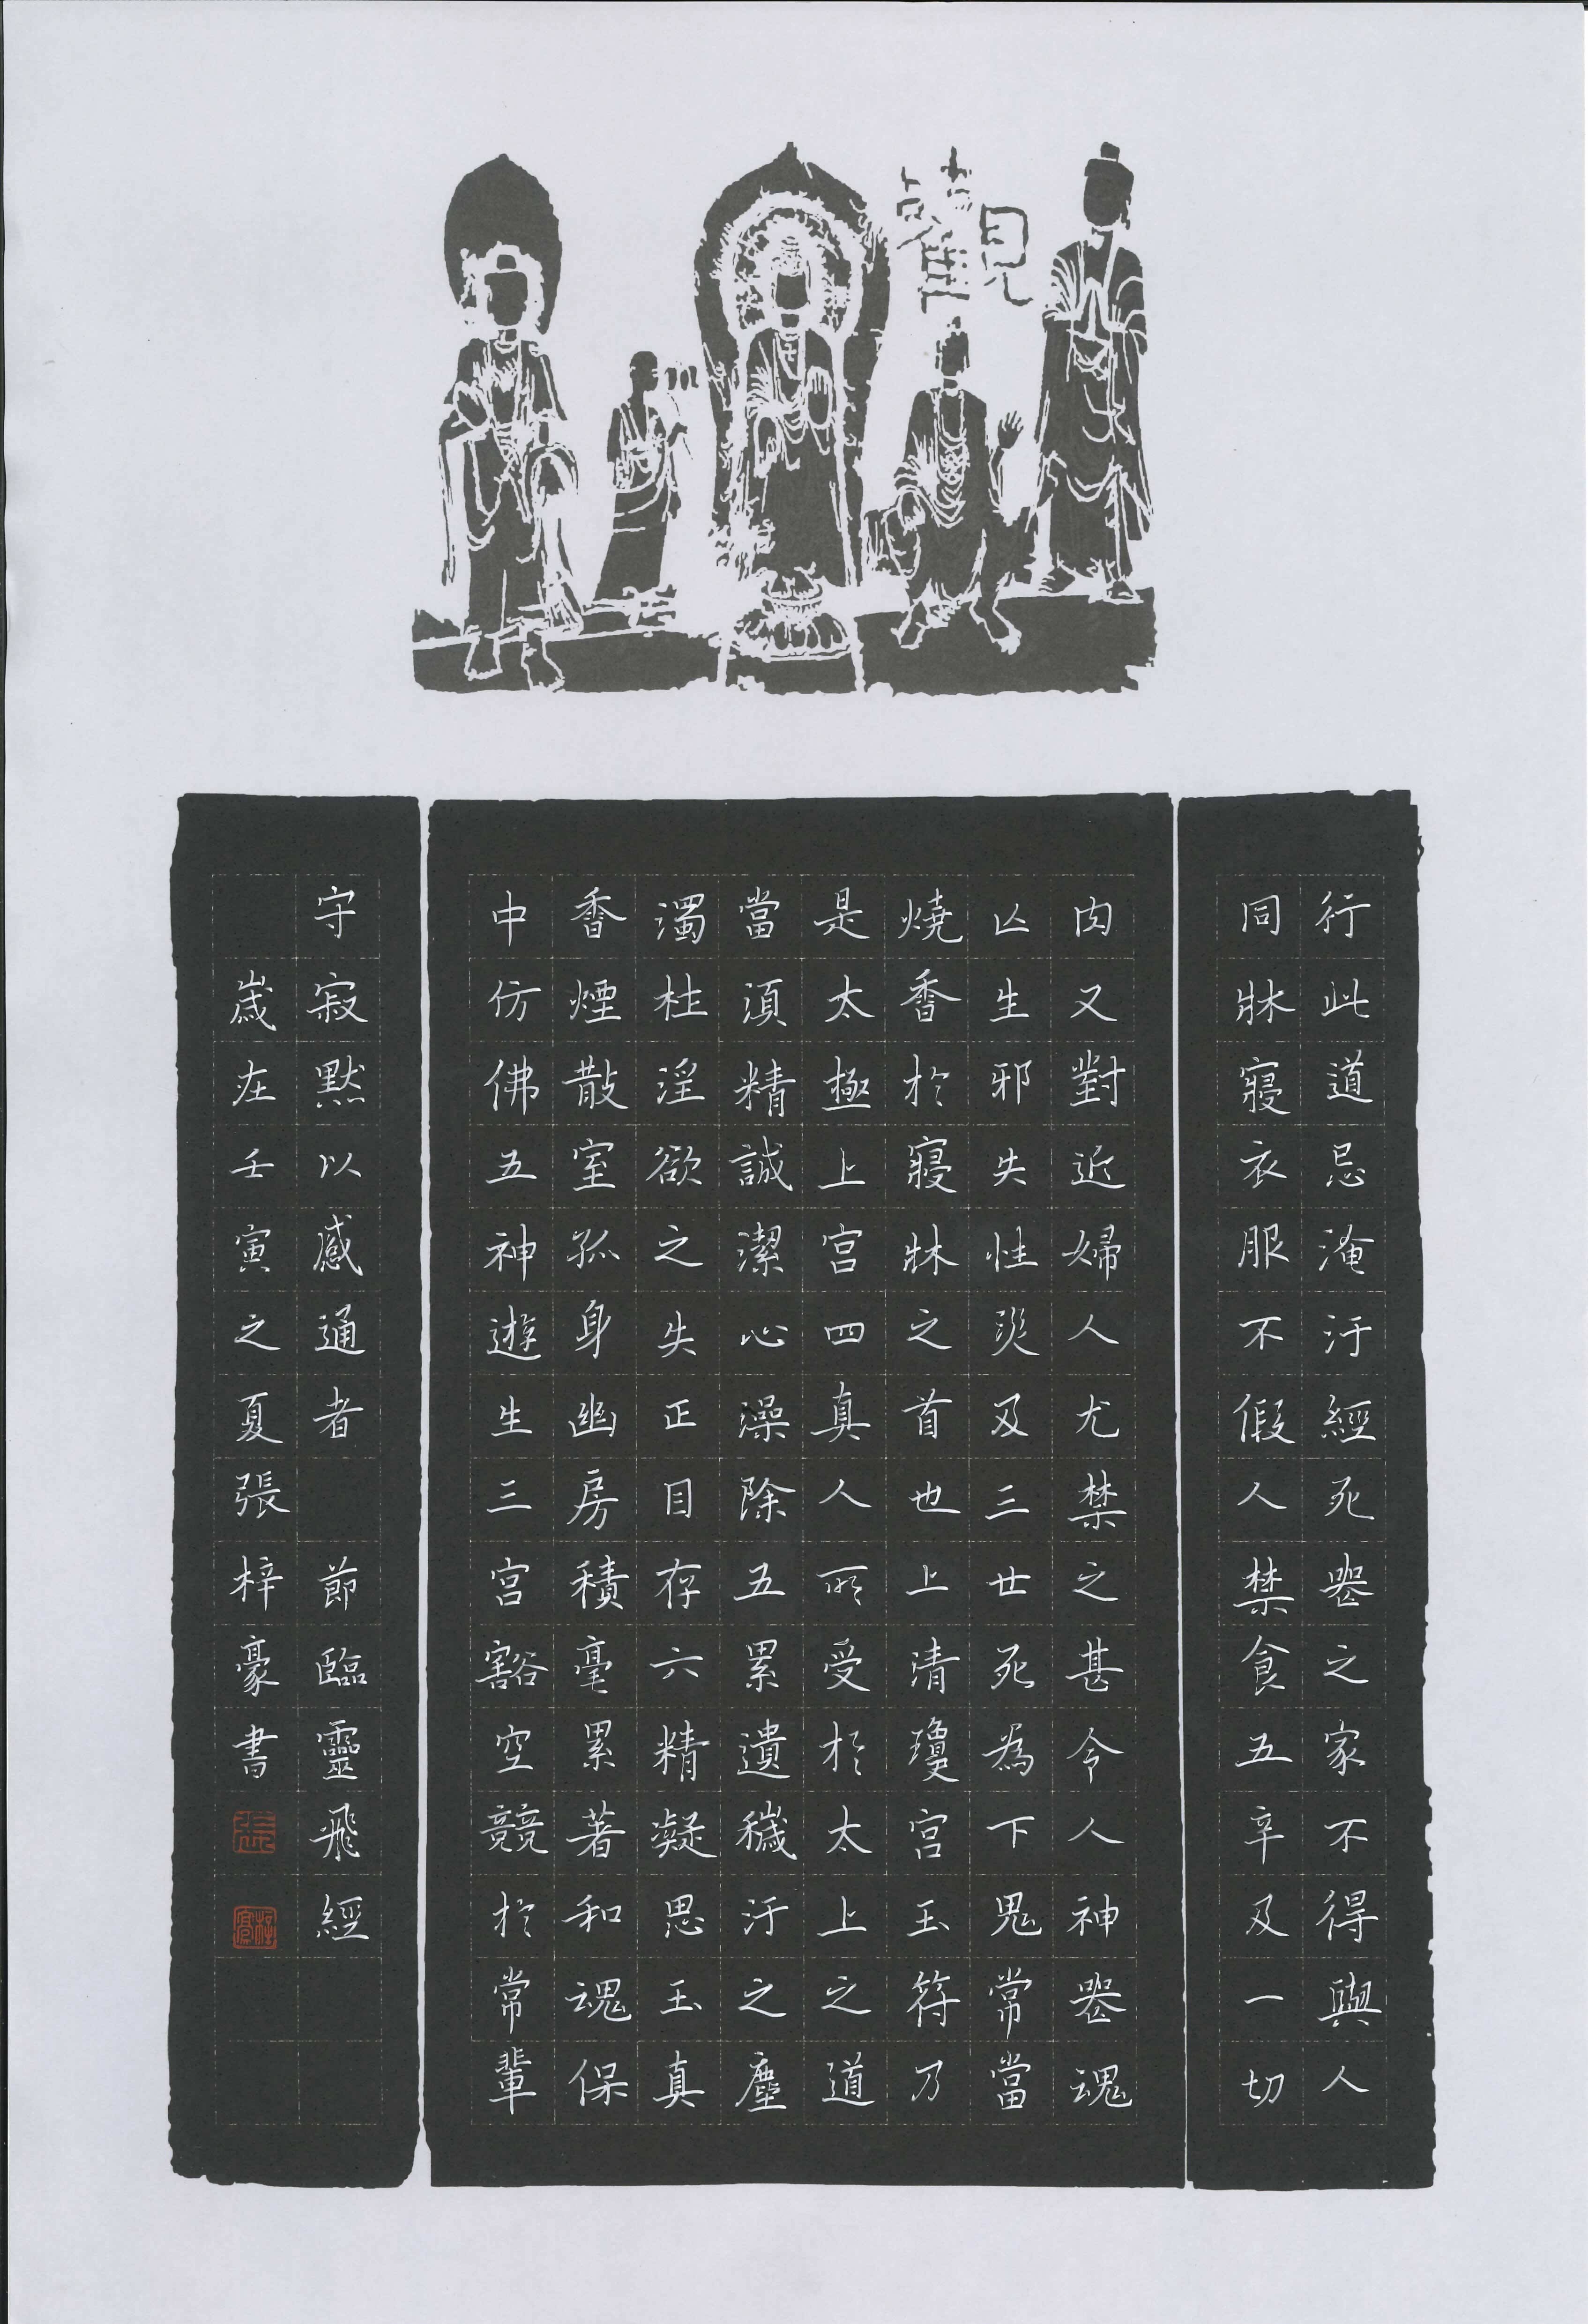 觀
行此道忌淹汙經死喪之家不得與人
同牀寢衣服不假人禁食五辛及一切
肉又對近婦人尤禁之甚令人神喪魂
亾生邪失性災及三世死為下鬼常當
燒香於寢牀之首也上清瓊宮玉符乃
是太極上宮四真人所受於太上之道
當須精誠潔心澡除五累遺穢汙之塵
濁杜淫欲之失正目存六精凝思玉真
香煙散室孤身幽房積毫累著和魂保
中仿佛五神遊生三宮豁空競於常輩
守寂默以感通者 節臨靈飛經
歲在壬寅之夏張梓豪書